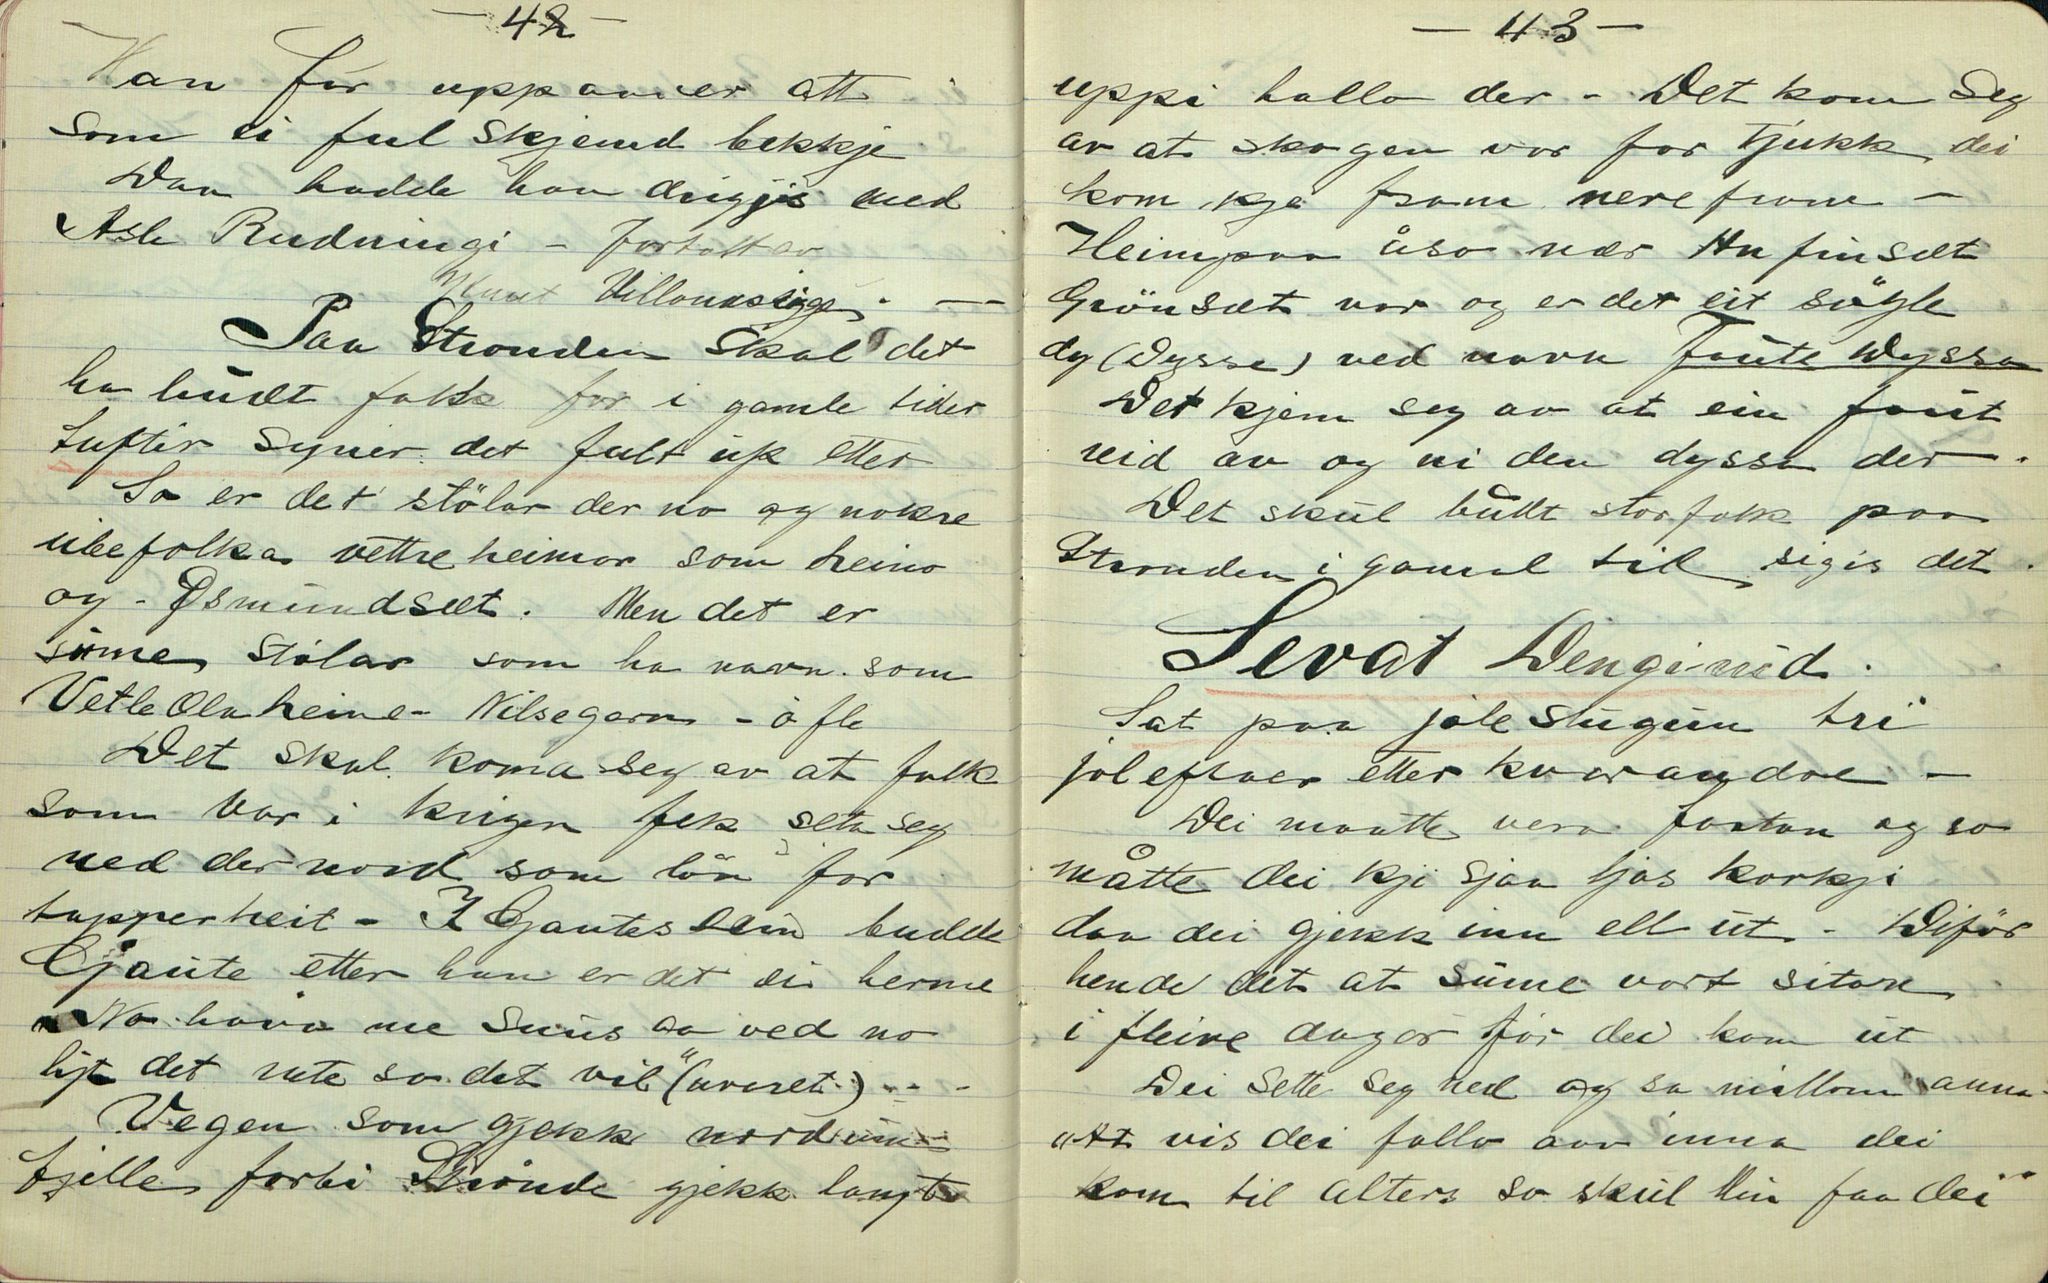 - 42 -
Han för uppanner att
som ei ful skjemd bekkje
Daa hadde han drigjis med
Asle Rudningi - fortalt av
Villandsiggen. —
Paa Stronden skal det
ha budt folk för i gamle tider
tuftir syner det fult üp etter
So er det stölar der no og nokre
übefolka vettre heimar som heino
og - Åsmündset. Men det er
süme stölar som ha navn som
Vetle Ola heime - Nilsegarn - o fle
Det skal koma seg av at folk
som var i krigen fek seta seg
ned der nord som lön for
tapperheit - I Gautes eim budde
Gjaute etter han er det ei herme
"No hava me suus aa ved no
ljt det rute so det vil" (uveret) - - -
Vegen som gjekk nord üm
fjelle forbi Strönde gjekk langt
- 43 -
uppi hallo der - Det kom seg
av at skogen var for tjukk, dei
kom kje fram nere fram -
Heimpaa åso nær Hnfinset
Grönset var og er det eit söyle
dy (Dysse) ved navn Faute Dyssa
Det kjem seg av at ein faut
reid av og ni den dyssa der.
Det skul budt storfolk paa
Stronden i gamal tid sigis det.
Sevat Dengi-nid.
Sat paa jole stugün tri
jol eftaer etter kvarandre -
Dei maatte vera fastan og so
måtte dei kji sjaa ljos korkji
daa dei gjekk inn ell üt - Diför
hende det at süme vart sitare
i fleire dagar för dei kom üt
Dei sette seg ned og sa millom anna
"At vis dei fallo aav inna dei
kom til alters so skul Hin faa dei"